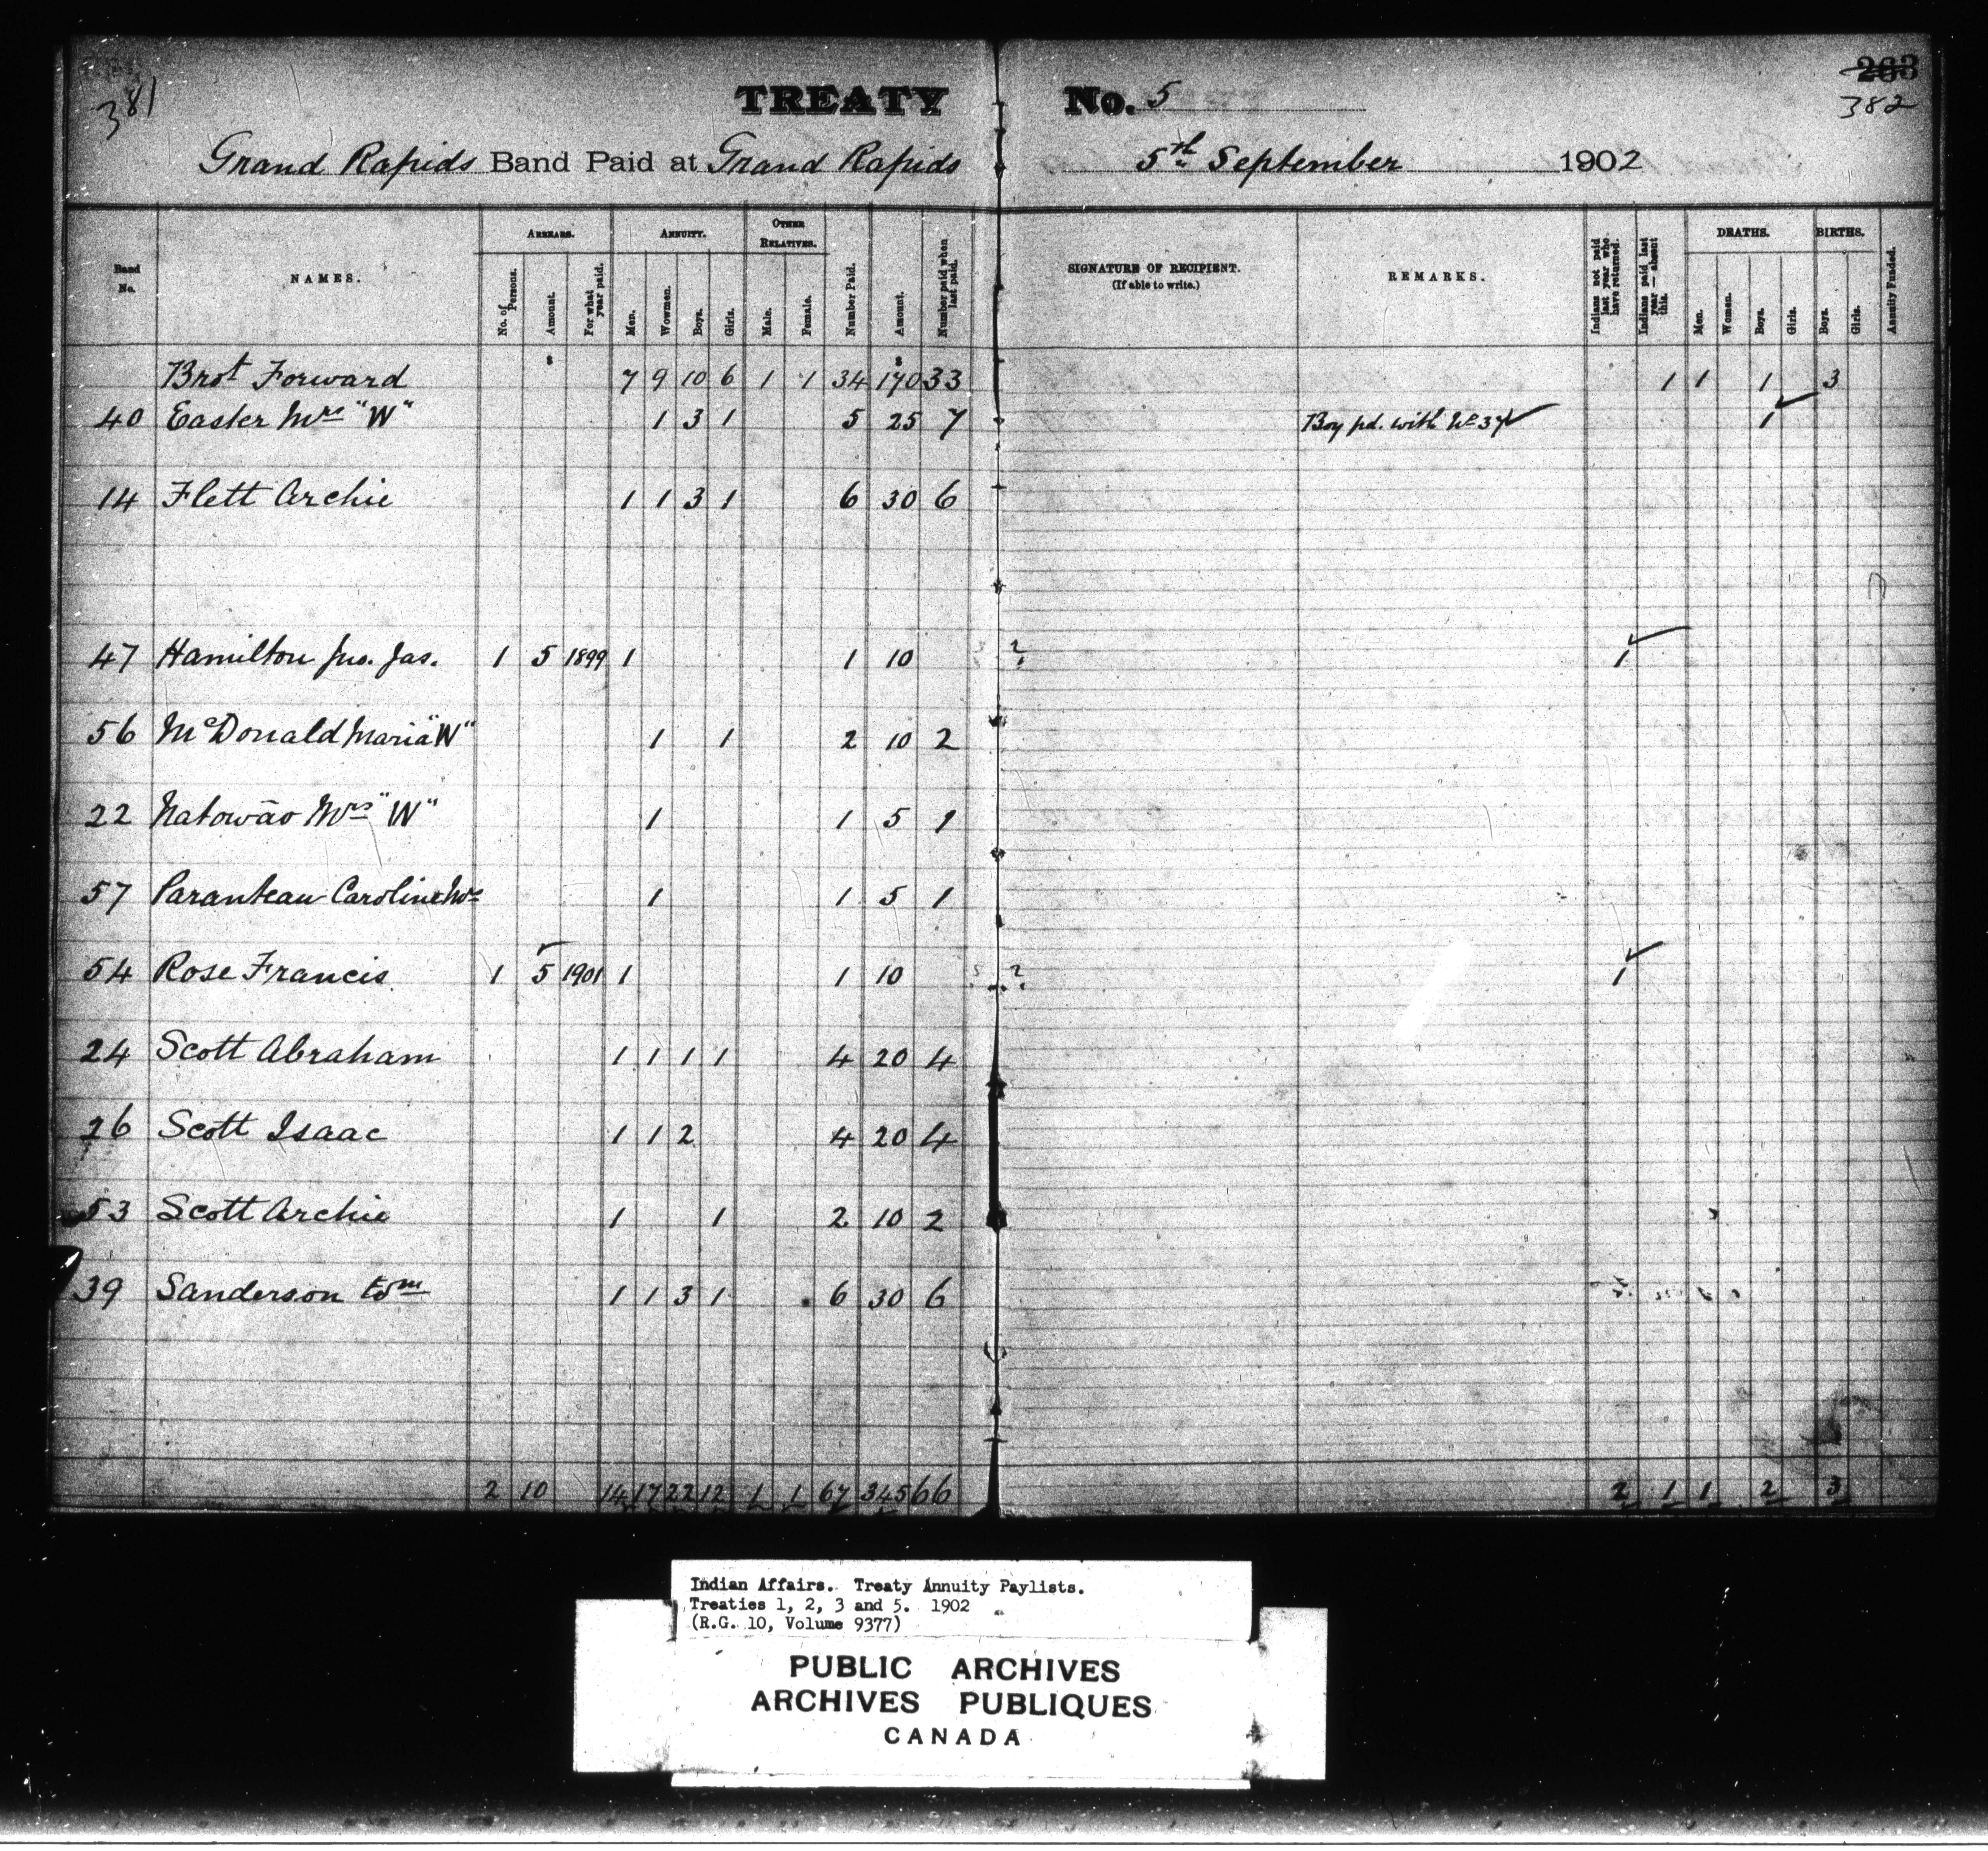 381
TREATY No. 5
263
382
Grand Rapids Band Paid at Grand Rapids 5th September 1902
Band No.
NAMES.
ARREARS.
No. of Persons.
Amount.
For what year paid.
ANNUITY.
Men.
Wowmen.
Boys.
Girls.
OTHER RELATIVES.
Male.
Female.
Number Paid.
Amount.
Number paid when last paid.
SIGNATURE OF RECIPIENT.
(If able to write.)
REMARKS.
Indians not paid last year who have returned.
Indians paid last year — absent this.
DEATHS.
Men.
Women.
Boys.
Girls.
BIRTHS.
Boys.
Girls.
Annuity Funded.
$ $
Brot Forward 7 9 10 6 1 1 34 170 33 1 1 1 3
40 Easter Mrs "W" 1 3 1 5 25 7 Boy pd. with No 37 1
14 Flett Archie 1 1 3 1 6 30 6
47 Hamilton Jno. Jas. 1 5 1899 1 1 10 ? 1
56 McDonald Maria "W" 1 1 2 10 2
22 Natowāo Mrs "W" 1 1 5 1
57 Paranteau Caroline Mrs 1 1 5 1
54 Rose Francis 1 5 1901 1 1 10 ? 1
24 Scott Abraham 1 1 1 1 4 20 4
26 Scott Isaac 1 1 2 4 20 4
53 Scott Archie 1 1 2 10 2
39 Sanderson Wm 1 1 3 1 6 30 6
2 10 14 17 22 12 1 1 67 345 66 2 1 1 2 3
Indian Affairs. Treaty Annuity Paylists.
Treaties 1, 2, 3 and 5. 1902
(R.G. 10, Volume 9377)
PUBLIC ARCHIVES
ARCHIVES PUBLIQUES
CANADA